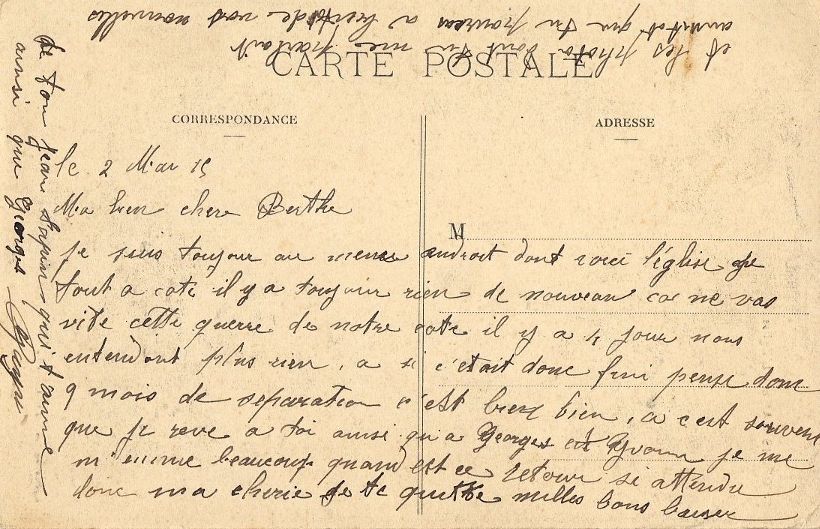 CARTE POSTALE
CORRESPONDANCE
ADRESSE
M
le 2 Mai 15
Ma bien chere Berthe
je suis toujour au meme androit dont voici l'église je
tout a coté il y a toujour rien de nouveau ca ne vas
vite cette guerre de notre coté il y a 4 jour nous
entendont plus rien, a si c'était donc fini pense donc
9 mois de separation c'est bien bien, a c'est souvent
que je reve a toi ainsi qu'a Georges et Yvonne je me
m'ennuie beaucoup quand est ce retour se attendu
donc ma cherie je te quitte milles bons baiser
de ton Jean qui t'aime
ainsi que Georges
et les photo dont tu me parlait
aussitot que tu pourras a bientot de vos nouvelles